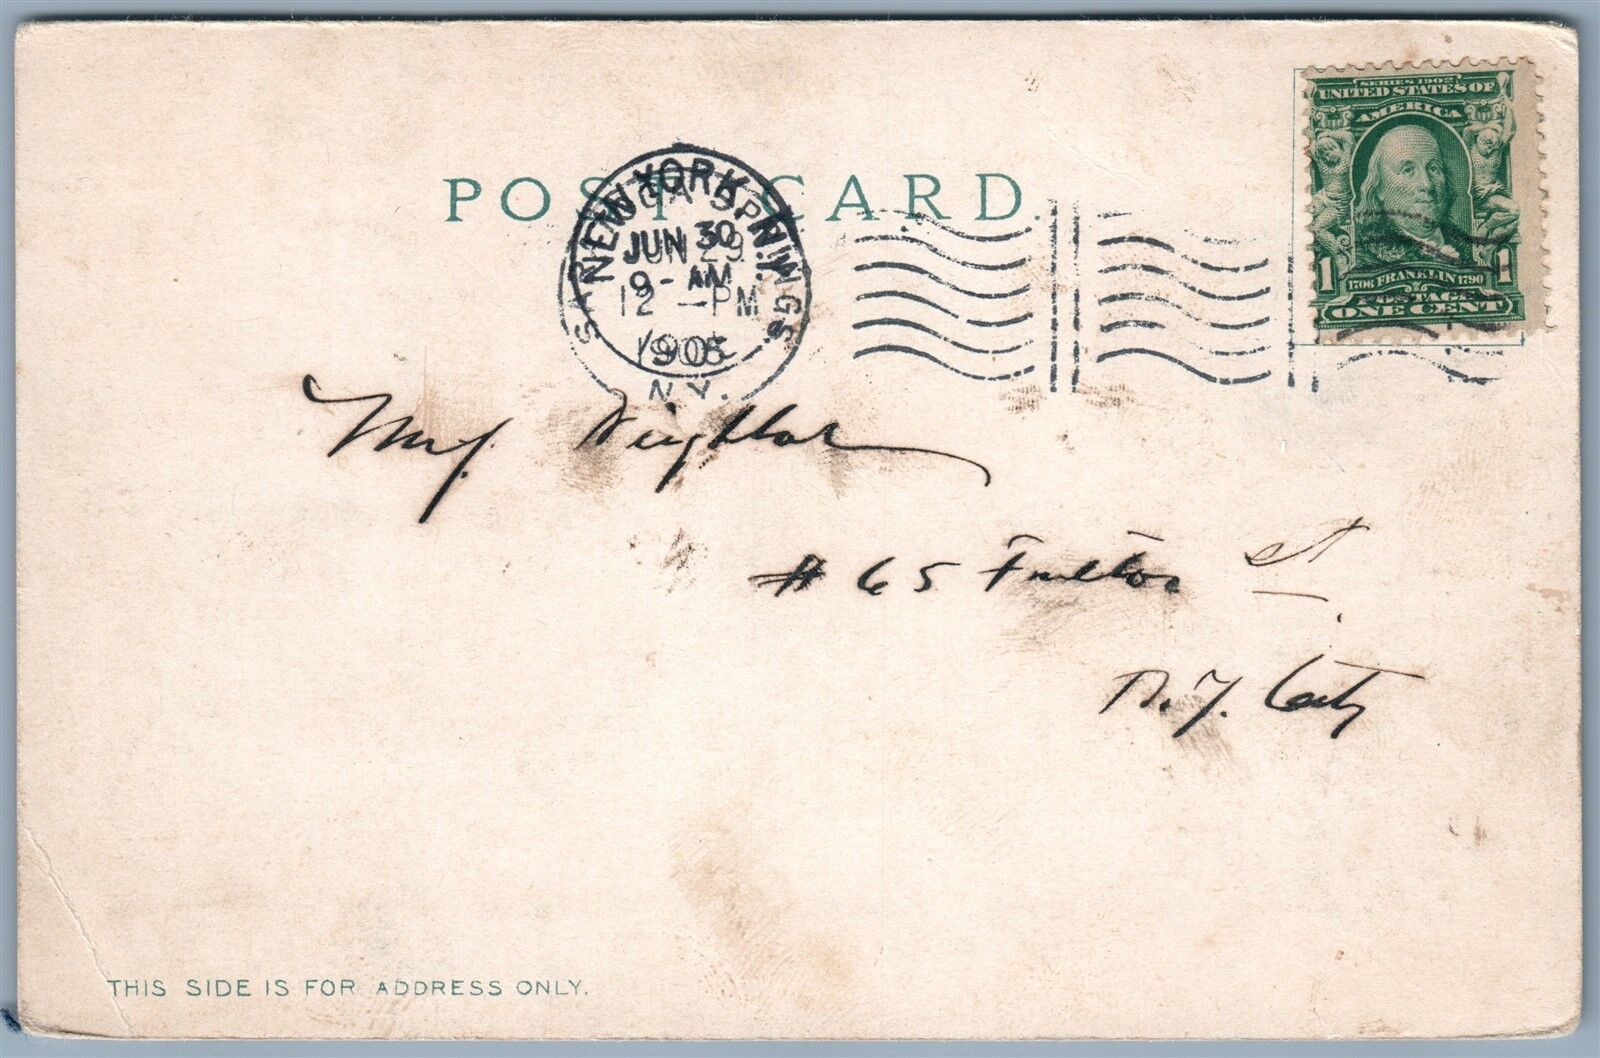 POST CARD.
SERIES 1902
UNITED STATES OF
AMERICA
1 1706 FRANKLIN 1790 1
POSTAGE
ONE CENT
NEW YORK, N.Y.
JUN 30
9-AM
1905
SARATOGA SPRINGS
JUN 29
12-PM
N.Y.
# 65 Fulton St.
N.Y. City
THIS SIDE IS FOR ADDRESS ONLY.